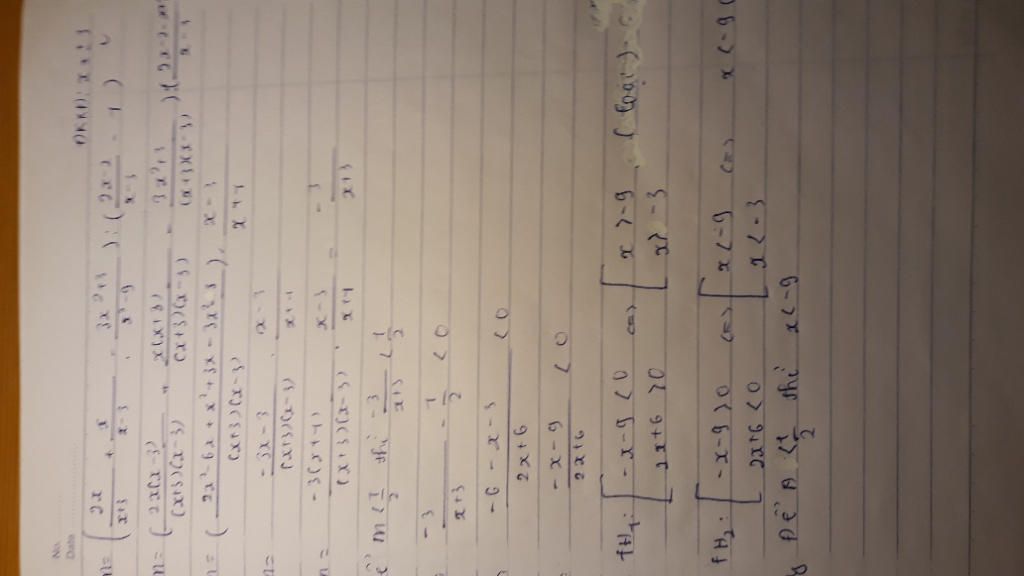 No.
Date
ĐKXĐ: x ≠ ±3
M = ( 2x/(x+3) + x/(x-3) - (3x²+3)/(x²-9) ) : ( (2x-2)/(x-3) - 1 )
= ( 2x(x-3)/((x+3)(x-3)) + x(x+3)/((x+3)(x-3)) - (3x²+3)/((x+3)(x-3)) ) :
= ( (2x²-6x+x²+3x-3x²-3)/((x+3)(x-3)) ) . (x-3)/(x+1)
= (-3x-3)/((x+3)(x-3)) . (x-3)/(x+1)
= -3(x+1)/((x+3)(x-3)) . (x-3)/(x+1) = -3/(x+3)
Để M < 1/2 thì -3/(x+3) < 1/2
-3/(x+3) - 1/2 < 0
(-6-x-3)/(2x+6) < 0
(-x-9)/(2x+6) < 0
TH1: [ -x-9 < 0 ; 2x+6 > 0 (=) [ x > -9 ; x > -3 (loại)
TH2: [ -x-9 > 0 ; 2x+6 < 0 (=) [ x < -9 ; x < -3 (=) x < -9
y Để A < 1/2 thì x < -9